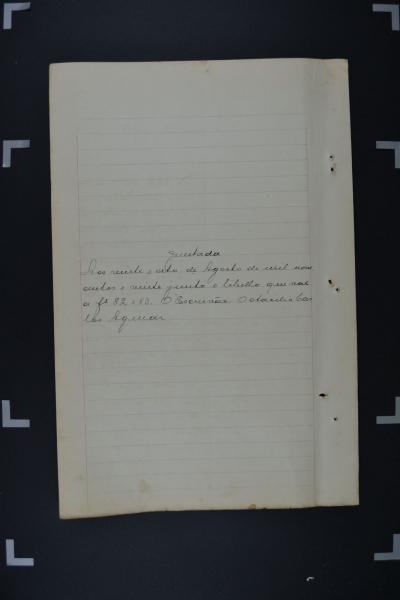 Juntada
Aos vinte e oito de Agosto de mil nove
centos e vinte junto o libello que vae
a fs 82 e 83. O Escrivão Octavilio Cas
tas Aguiar